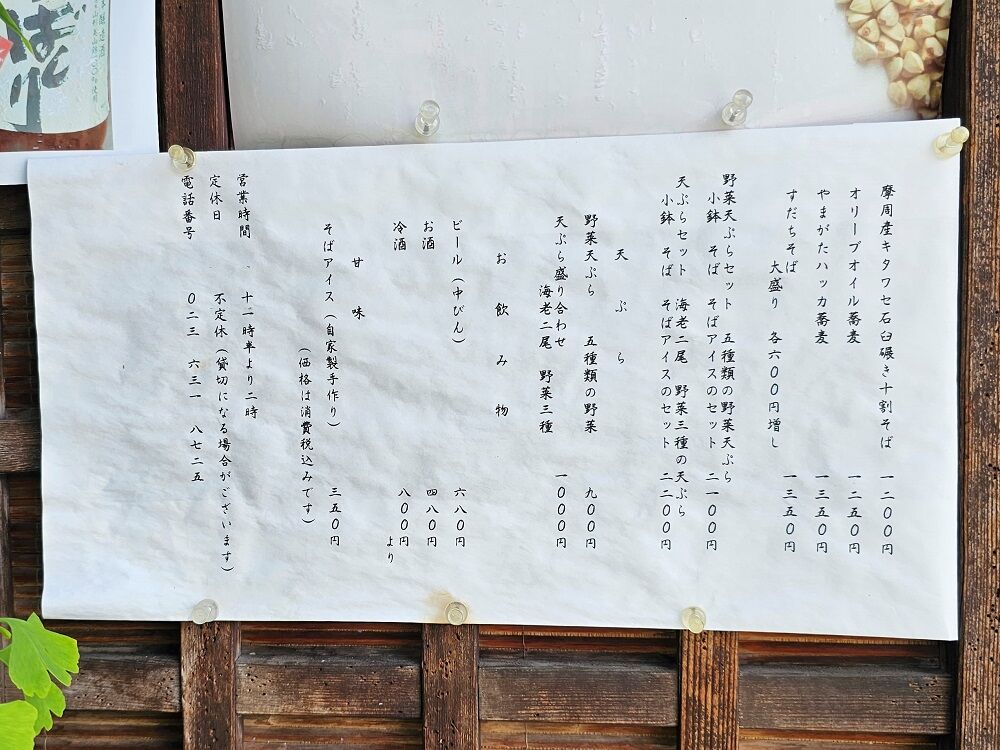 摩周産キタワセ石臼碾き十割そば 一二00円
オリーブオイル蕎麦 一二五0円
やまがたハッカ蕎麦 一三五0円
すだちそば 一三五0円
大盛り 各六00円増し
野菜天ぷらセット 五種類の野菜天ぷら
小鉢 そば そばアイスのセット 二一00円
天ぷらセット 海老二尾 野菜三種の天ぷら
小鉢 そば そばアイスのセット 二二00円
天ぷら
野菜天ぷら 五種類の野菜 九00円
天ぷら盛り合わせ
海老二尾 野菜三種 一000円
お飲み物
ビール(中びん) 六八0円
お酒 四八0円
冷酒 八00円より
甘味
そばアイス(自家製手作り) 三五0円
(価格は消費税込みです)
営業時間 十一時半より二時
定休日 不定休(貸切になる場合がございます)
電話番号 0二三 六三一 八七二五